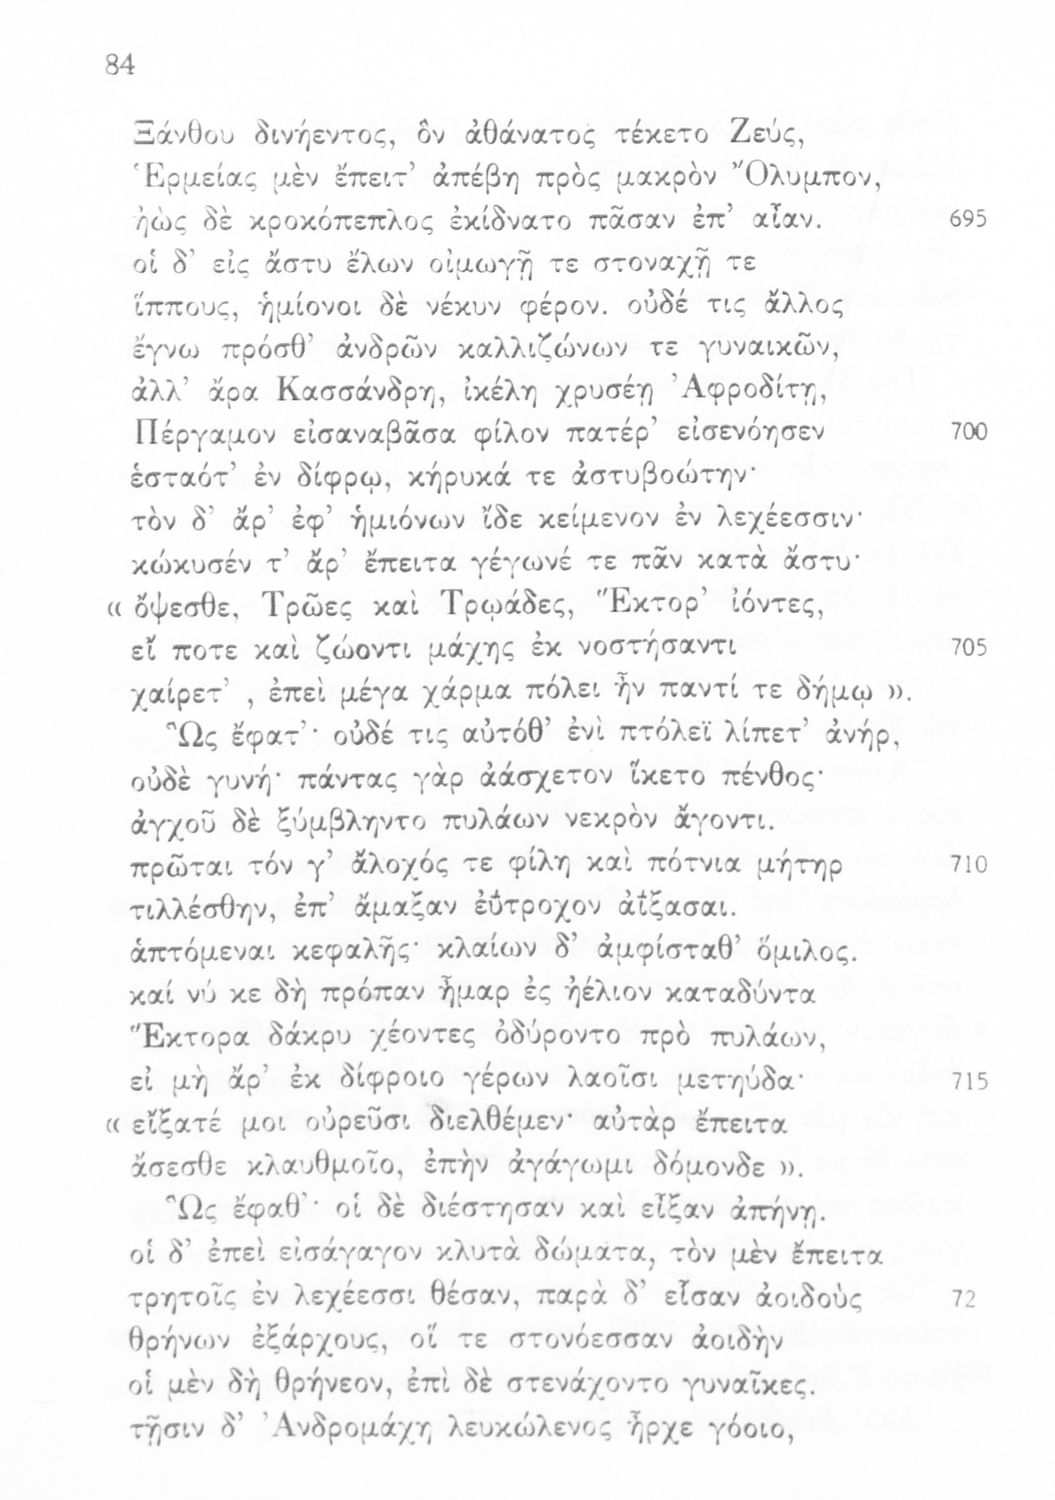 84
Ξάνθου δινήεντος, ὃν ἀθάνατος τέκετο Ζεύς,
Ἑρμείας μὲν ἔπειτ’ ἀπέβη πρὸς μακρὸν Ὄλυμπον,
ἠὼς δὲ κροκόπεπλος ἐκίδνατο πᾶσαν ἐπ’ αἶαν. 695
οἱ δ’ εἰς ἄστυ ἔλων οἰμωγῇ τε στοναχῇ τε
ἵππους, ἡμίονοι δὲ νέκυν φέρον. οὐδέ τις ἄλλος
ἔγνω πρόσθ’ ἀνδρῶν καλλιζώνων τε γυναικῶν,
ἀλλ’ ἄρα Κασσάνδρη, ἰκέλη χρυσέῃ Ἀφροδίτῃ,
Πέργαμον εἰσαναβᾶσα φίλον πατέρ’ εἰσενόησεν 700
ἑσταότ’ ἐν δίφρῳ, κήρυκά τε ἀστυβοώτην·
τὸν δ’ ἄρ’ ἐφ’ ἡμιόνων ἴδε κείμενον ἐν λεχέεσσιν·
κώκυσέν τ’ ἄρ’ ἔπειτα γέγωνέ τε πᾶν κατὰ ἄστυ·
« ὄψεσθε, Τρῶες καὶ Τρῳάδες, Ἕκτορ’ ἰόντες,
εἴ ποτε καὶ ζώοντι μάχης ἐκ νοστήσαντι 705
χαίρετ’ , ἐπεὶ μέγα χάρμα πόλει ἦν παντί τε δήμῳ ».
Ὣς ἔφατ’· οὐδέ τις αὐτόθ’ ἐνὶ πτόλεϊ λίπετ’ ἀνήρ,
οὐδὲ γυνή· πάντας γὰρ ἀάσχετον ἵκετο πένθος·
ἀγχοῦ δὲ ξύμβληντο πυλάων νεκρὸν ἄγοντι.
πρῶται τόν γ’ ἄλοχός τε φίλη καὶ πότνια μήτηρ 710
τιλλέσθην, ἐπ’ ἄμαξαν ἐΰτροχον ἀΐξασαι.
ἁπτόμεναι κεφαλῆς· κλαίων δ’ ἀμφίσταθ’ ὅμιλος.
καί νύ κε δὴ πρόπαν ἦμαρ ἐς ἠέλιον καταδύντα
Ἕκτορα δάκρυ χέοντες ὀδύροντο πρὸ πυλάων,
εἰ μὴ ἄρ’ ἐκ δίφροιο γέρων λαοῖσι μετηύδα· 715
« εἴξατέ μοι οὐρεῦσι διελθέμεν· αὐτὰρ ἔπειτα
ἄσεσθε κλαυθμοῖο, ἐπὴν ἀγάγωμι δόμονδε ».
Ὣς ἔφαθ’· οἱ δὲ διέστησαν καὶ εἶξαν ἀπήνῃ.
οἱ δ’ ἐπεὶ εἰσάγαγον κλυτὰ δώματα, τὸν μὲν ἔπειτα
τρητοῖς ἐν λεχέεσσι θέσαν, παρὰ δ’ εἷσαν ἀοιδοὺς 72
θρήνων ἐξάρχους, οἵ τε στονόεσσαν ἀοιδὴν
οἱ μὲν δὴ θρήνεον, ἐπὶ δὲ στενάχοντο γυναῖκες.
τῇσιν δ’ Ἀνδρομάχη λευκώλενος ἦρχε γόοιο,